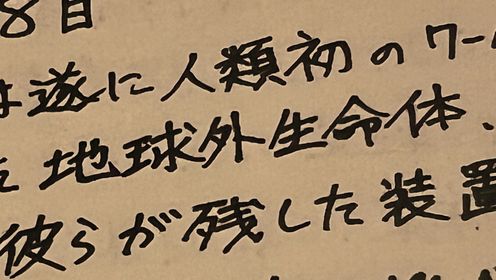 8日
は遂に人類初のワー
地球外生命体、
彼らが残した装置